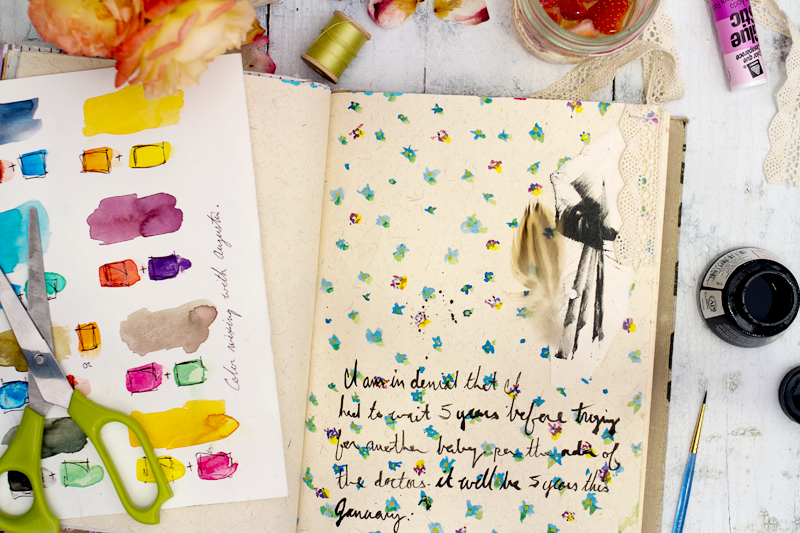 Color mixing with Augusta.
I am in denial that I
had to wait 5 years before trying
for another baby, per the order of
the doctors. it will be 5 years this
January.
+
+
+
+
or
+
+
+